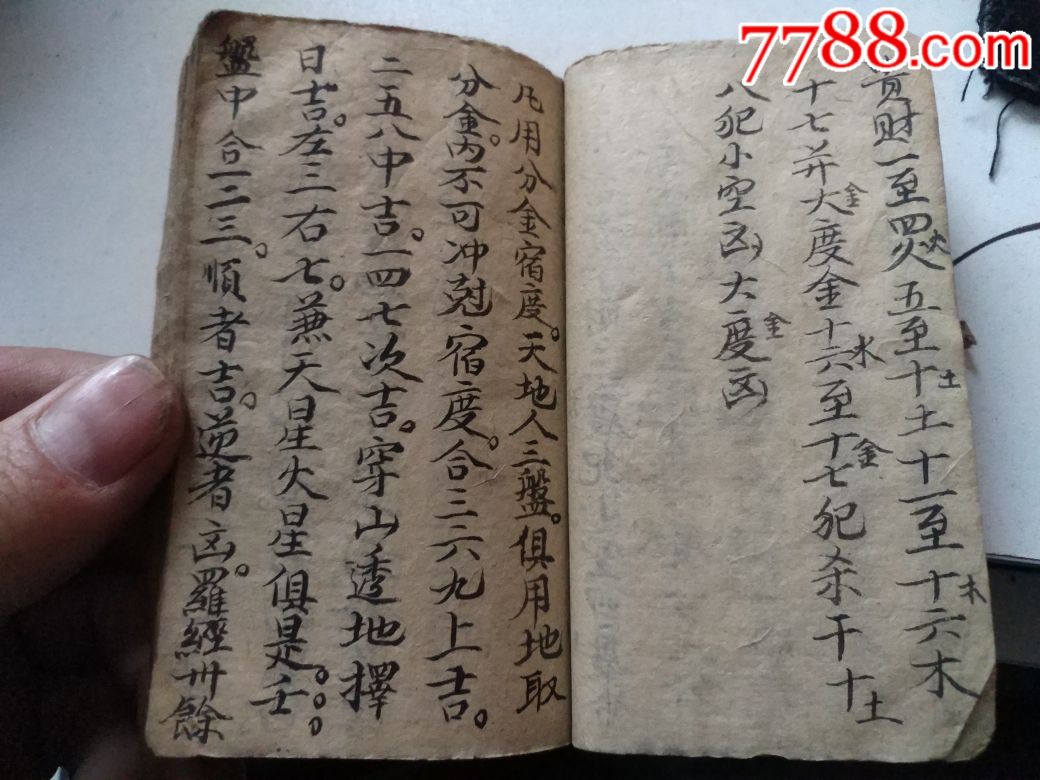 7788.com
賁财一至四火五至十土十一至十六木
火土木
十七并大度金十六至十七犯杀干十
金木金土
八犯小空凶大度凶
金
凡用分金宿度。天地人三盤。俱用地取
分金。内不可冲尅宿度。合三六九上吉。
二五八中吉。一四七次吉。穿山透地擇
日吉。左三右七。兼天星火星俱是。壬
盤中合一二三。順者吉。逆者凶。羅經卅餘